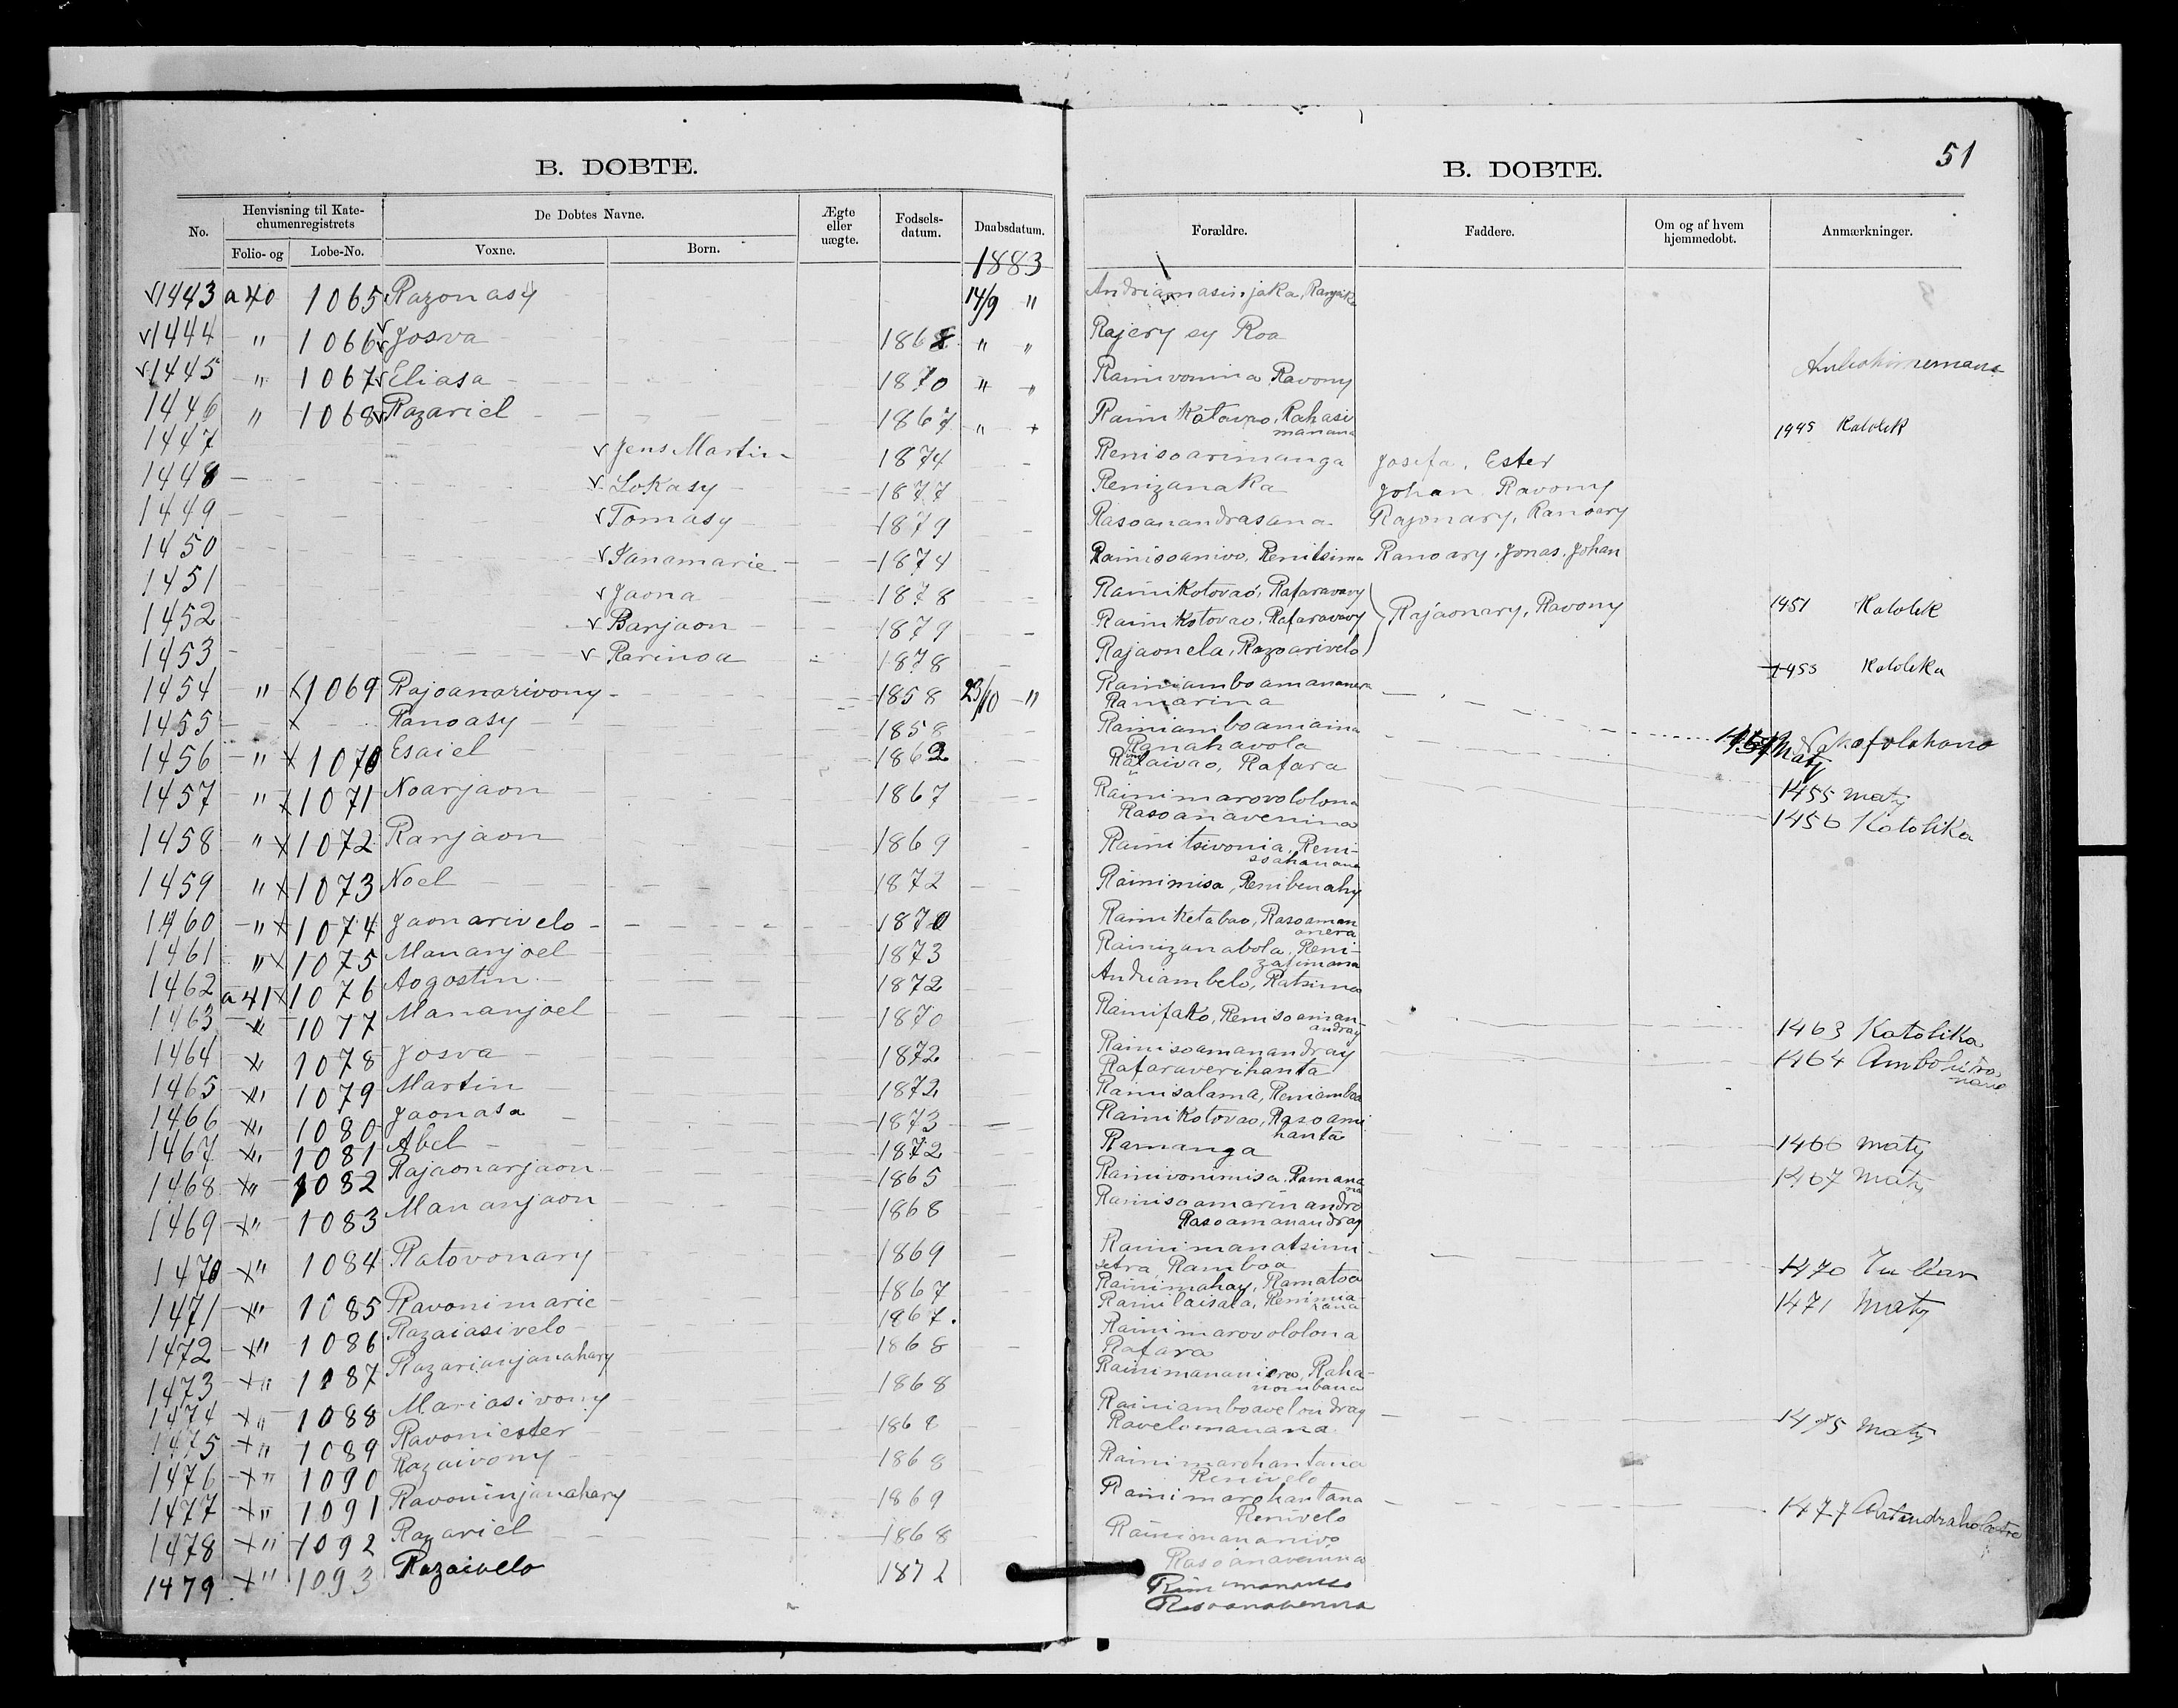 B. DOBTE.
No. Henvisning til Kate-chumenregistrets De Dobtes Navne. Ægte eller uægte. Fodsels-datum. Daabsdatum.
Folio- og Lobe-No. Voxne. Born.
1883
1443 a 40 1065 Razonasy 14/9 "
1444 " 1066 Josva 1868 " "
1445 " 1067 Eliasa 1870 " "
1446 " 1068 Razariel 1867 "
1447 Jens Martin 1874
1448 Lokasy 1877
1449 Tomasy 1879
1450 Janamarie 1874
1451 Jaona 1878
1452 Barjaon 1879
1453 Rarinoa 1878
1454 " x 1069 Rajoanarivony 1858 23/10 "
1455 x Ranoasy 1858
1456 " x 1070 Esaiel 1862
1457 " x 1071 Noarjaon 1867
1458 " x 1072 Ranjaon 1869
1459 " x 1073 Noel 1872
1460 " x 1074 Jaonarivelo 1870
1461 " x 1075 Mananjoel 1873
1462 a 41 x 1076 Aogostin 1872
1463 x 1077 Mananjoel 1870
1464 x 1078 Josva 1872
1465 x" 1079 Martin 1872
1466 x" 1080 Jaonasa 1873
1467 x" 1081 Abel 1872
1468 x" 1082 Rajaonarjaon 1865
1469 x" 1083 Mananjaon 1868
1470 x" 1084 Ratovonary 1869
1471 x" 1085 Ravonimarie 1867
1472 x" 1086 Razaiasivelo 1867.
1473 x" 1087 Razarianjanahary 1868
1474 x" 1088 Mariasivony 1868
1475 x" 1089 Ravoniester 1868
1476 x" 1090 Razaivony 1868
1477 x" 1091 Ravoninjanahary 1869
1478 x" 1092 Razariel 1868
1479 x" 1093 Razaivelo 1872
51
B. DOBTE.
Forældre. Faddere. Om og af hvem hjemmedobt. Anmærkninger.
Rajery sy Roa
Rainivonina Ravony
Raini Kotovao, Rahasi
manana 1445 Katolik
Renisoarimanga Josefa, Ester
Renizanaka Johan Ravony
Rasoanandrasana Rajonary, Ranoary
Rainisoanivo, Renitsima Ranoary, Jonas, Johan
Rainikotovao, Rafaravavy
Rainikotovao, Rafaravavy Rajaonary, Ravony 1451 Katolik
Rajaonela, Razoarivelo
1453 Katolika
Rainiamboamananera
Ramarina
Rainiamboamaina
Ranahavola
Rafara
Maty
Rainimarovololona 1455 Maty
Rasoanavenina 1456 Katolika
Rainitsivonia, Reni-
soahanana
Rainimisa, Renibenahy
Rainiketabao, Rasoaman
anera
Rainizanabola, Reni-
zafimana
Andriambelo, Ratsima
Rainifako, Renisoaman-
andray 1463 Katolika
Rainisoamanandray
Rafaraverihanta 1464
Rainisalama, Reniamboa
Rainikotovao, Rasoami
hanta
Ramanga 1466 Maty
Rainivonimisa, Ramana
na 1467 Maty
Rainisoamarinandro
Rasoamanandray
Rainimanatsimi
setra, Ramboa 1470
Rainimahay, Ramatoa
1471 Maty
Rainimarovololona
Rafara
Rainiamboavelondray
Ravelomanana 1475 Maty
Rainimarohantana
Renivelo
Rainimarohantana
Renivelo 1477
Rainimananivo
Rasoanavenina
Rasoanavenina